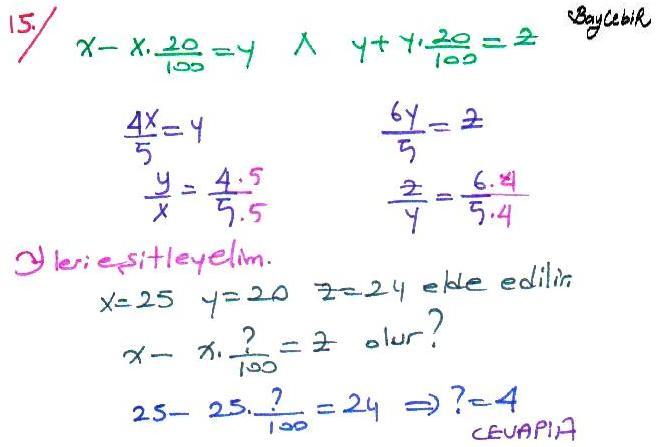 BayCebiR
15./
x - x. 20/100 = y ∧ y + y. 20/100 = z
4x/5 = y 6y/5 = z
y/x = 4.5/5.5 z/y = 6.4/5.4
y leri eşitleyelim.
x=25 y=20 z=24 elde edilir.
x - x. ?/100 = z olur?
25 - 25. ?/100 = 24 ⇒ ?=4
CEVAP:A